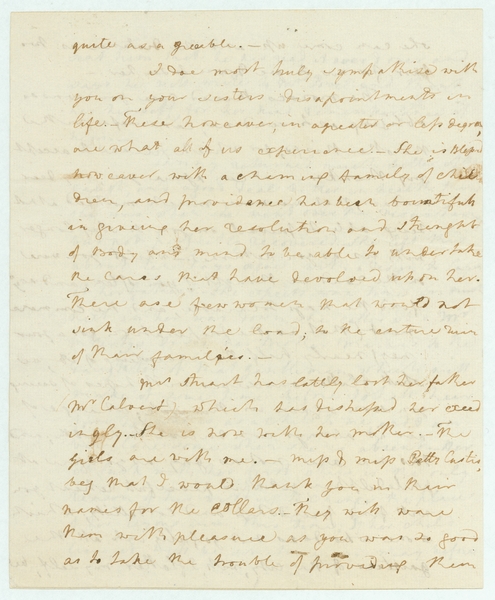 quite as agreeible. —
I doe most truly sympathise with
you on your sisters disapointments in
life. — These however, in a greater or less degree,
are what all of us experience. — She is blesst
however with a charming family of chil
dren, and providence has been bountifull
in giveing her resolution and strenght
of Body and mind to be able to undertake
the cares that have devolved upon her.
There are few women that would not
sink under the load; to the entire ruin
of thair families. —
Mrs Stuart has lattly lost her father
Mr Calvert, which has distressed her exced
ingly. She is now with her mother. — The
girls are with me. — miss & miss Patty Custis
beg that I would thank you in thair
names for the collars. — They will ware
them with pleasure as you was so good
as to take the trouble of provideing them